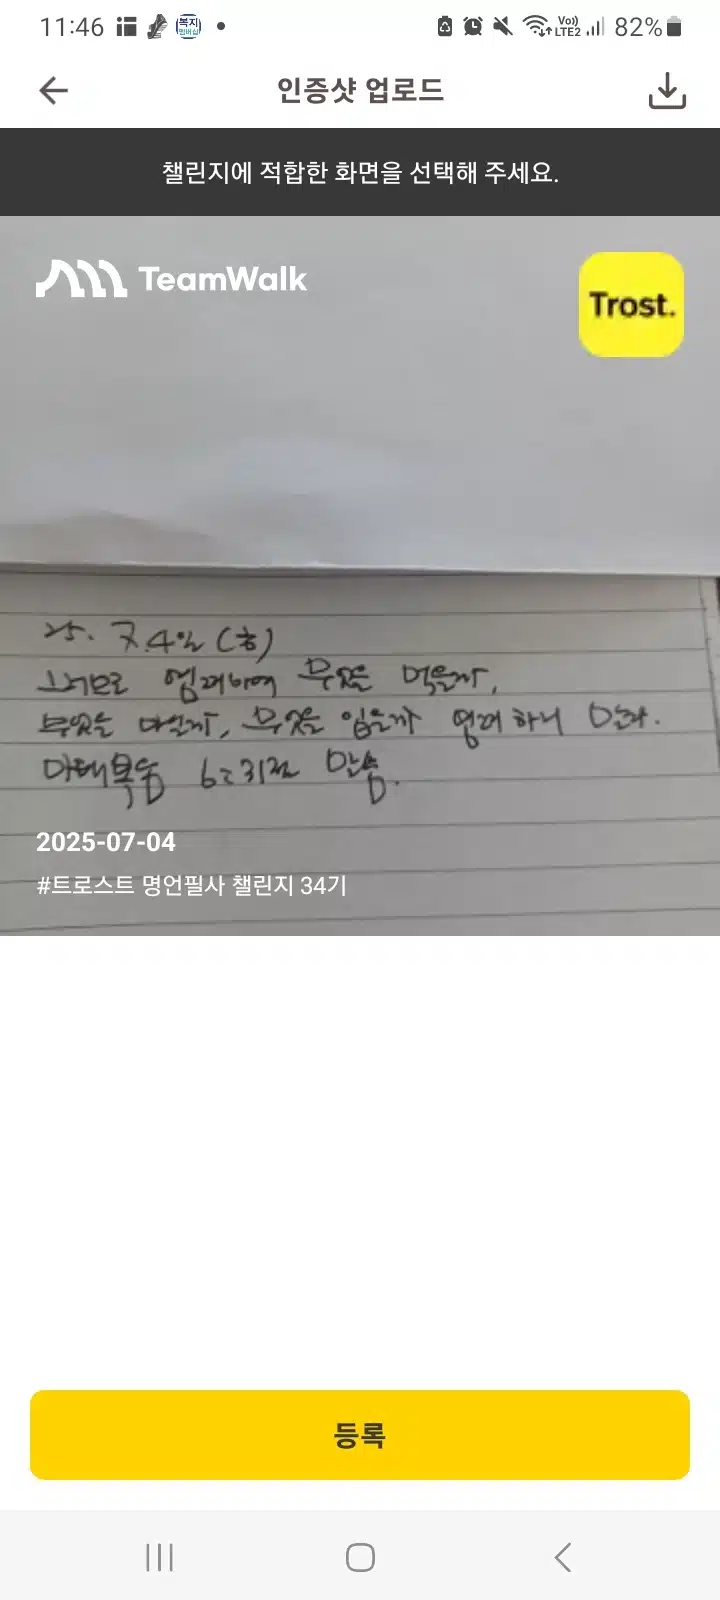 11:46
복지
멤버십
Vo))
LTE2
82%
인증샷 업로드
챌린지에 적합한 화면을 선택해 주세요.
TeamWalk
Trost.
25. 7.4일 (금)
그러므로 염려하여 무엇을 먹을까,
무엇을 마실까, 무엇을 입을까 염려 하지 말라.
마태복음 6:31절 말씀.
2025-07-04
#트로스트 명언필사 챌린지 34기
등록